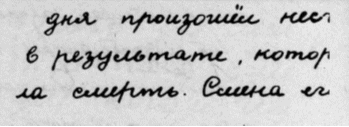 дня произошёл несч
в результате, котор
ла смерть. Смена ег